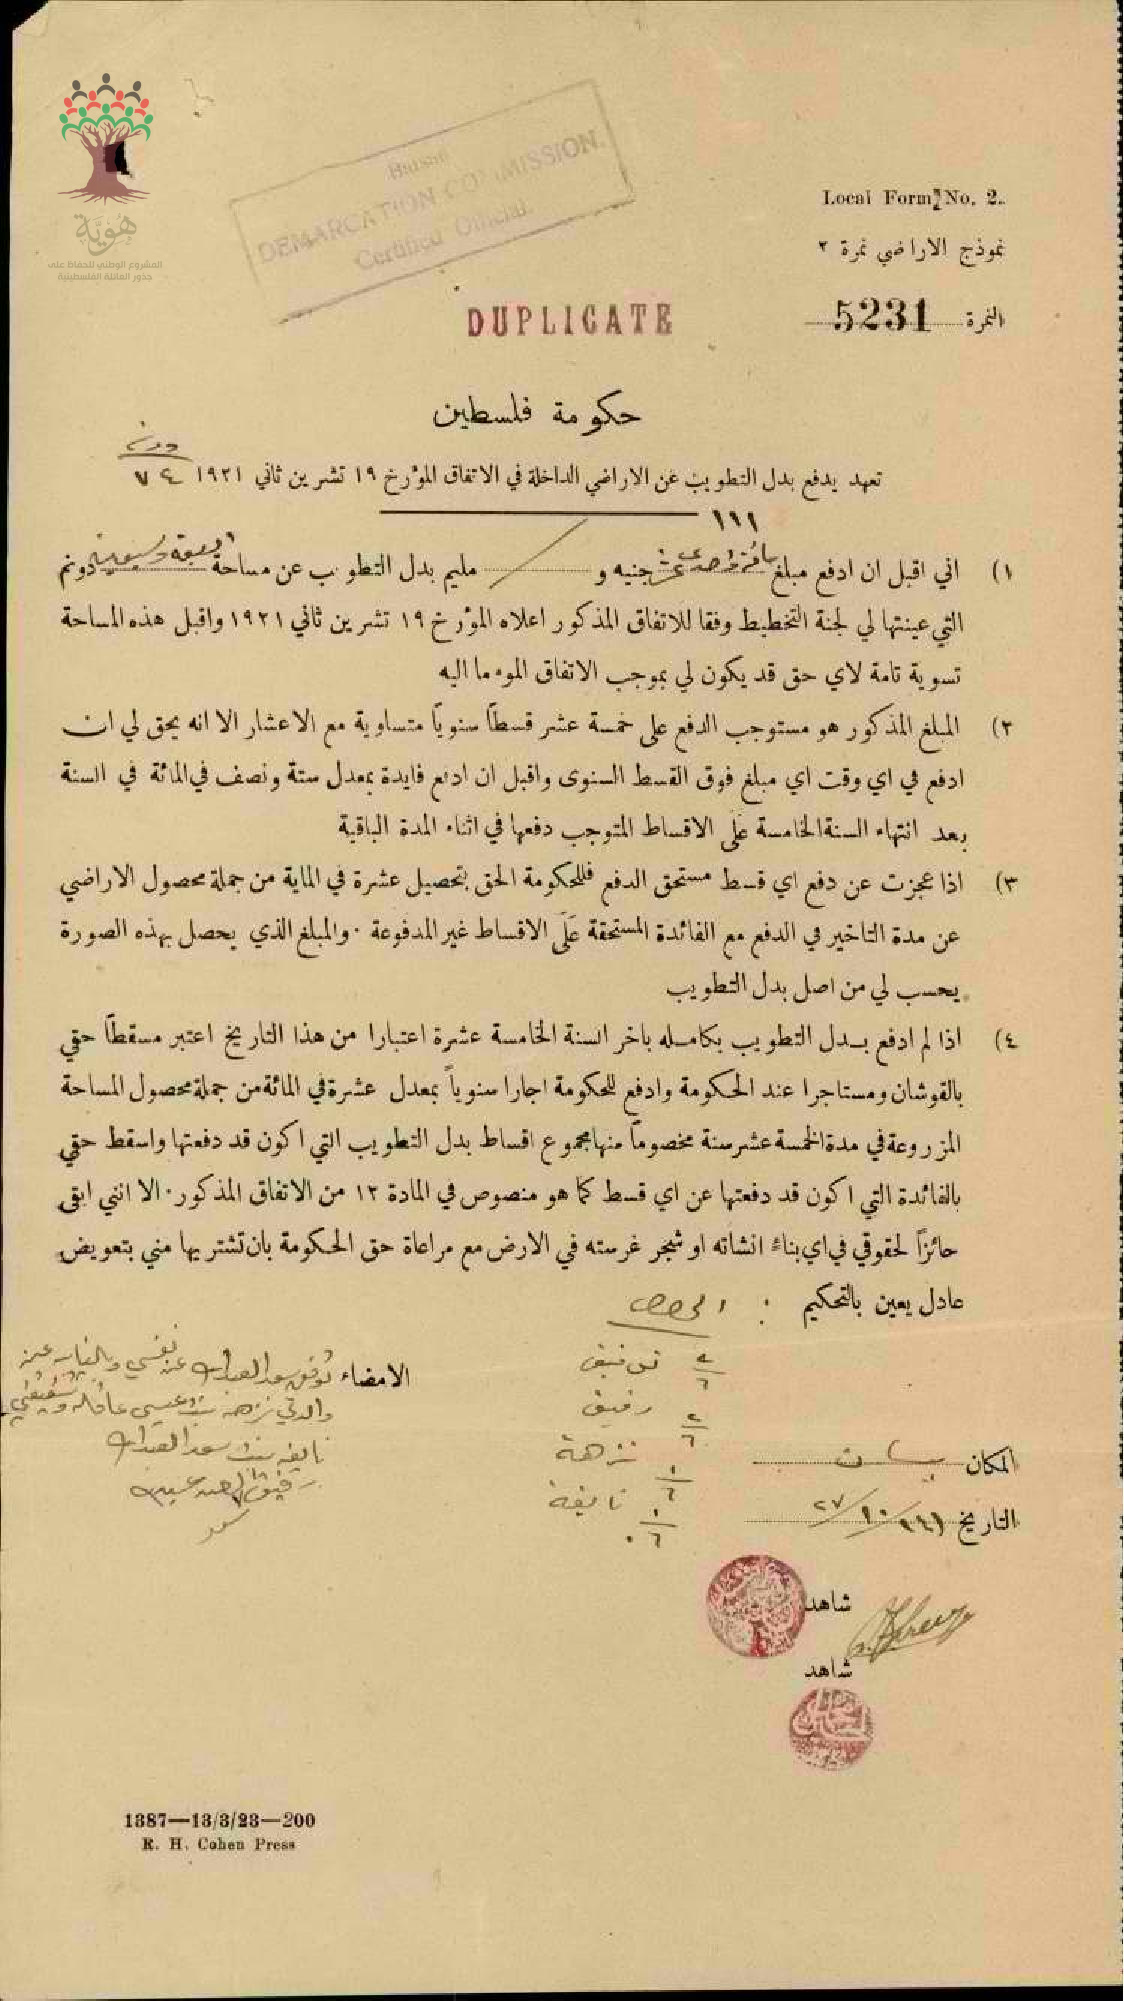 هُويَّة
المشروع الوطني للحفاظ على
جذور العائلة الفلسطينية
Baisan
DEMARCATION COMMISSION.
Certified Official
Local Form No. 2.
نموذج الاراضي نمرة ٢
النمرة 5231
DUPLICATE
حكومة فلسطين
دونم
٧٤
تعهد بدفع بدل التطويب عن الاراضي الداخلة في الاتفاق المؤرخ ١٩ تشرين ثاني ١٩٢١
١١١
١) اني اقبل ان ادفع مبلغ جنيه و مليم بدل التطويب عن مساحة اربعة وسبعين دونم
التي عينتها لي لجنة التخطيط وفقا للاتفاق المذكور اعلاه المؤرخ ١٩ تشرين ثاني ١٩٢١ واقبل هذه المساحة
تسوية تامة لاي حق قد يكون لي بموجب الاتفاق المومااليه
٢) المبلغ المذكور هو مستوجب الدفع على خمسة عشر قسطًا سنويًا متساوية مع الاعشار الا انه يحق لي ان
ادفع في اي وقت اي مبلغ فوق القسط السنوى واقبل ان ادفع فايدة بمعدل ستة ونصف في المائة في السنة
بعد انتهاء السنة الخامسة عَلَى الاقساط المتوجب دفعها في اثناء المدة الباقية
٣) اذا عجزت عن دفع اي قسط مستحق الدفع فللحكومة الحق بتحصيل عشرة في الماية من جملة محصول الاراضي
عن مدة التاخير في الدفع مع الفائدة المستحقة عَلَى الاقساط غير المدفوعة · والمبلغ الذي يحصل بهذه الصورة
يحسب لي من اصل بدل التطويب
٤) اذا لم ادفع بدل التطويب بكامله باخر السنة الخامسة عشرة اعتبارا من هذا التاريخ اعتبر مسقطًا حقي
بالقوشان ومستاجرا عند الحكومة وادفع للحكومة اجارا سنوياً بمعدل عشرة في المائة من جملة محصول المساحة
المزروعة في مدة الخمسة عشر سنة مخصوماً منها مجموع اقساط بدل التطويب التي اكون قد دفعتها واسقط حقي
بالفائدة التي اكون قد دفعتها عن اي قسط كما هو منصوص في المادة ١٣ من الاتفاق المذكور · الا انني ابقى
حائزاً لحقوقي في اي بناءً انشاته او شجر غرسته في الارض مع مراعاة حق الحكومة بان تشتريها مني بتعويض
عادل يعين بالتحكيم :
الحصص
توفيق ٢/٦
رفيق ٢/٦
نزهة ١/٦
نايفة ١/٦
الامضاء توفيق سعد العبدالله عن نفسي وبالنيابة عن
والدتي نزهة بنت عيسى وشقيقتي
نايفه بنت سعد العبدالله
المكان بيسان
التاريخ
شاهد
شاهد
1387—13/3/23—200
R. H. Cohen Press